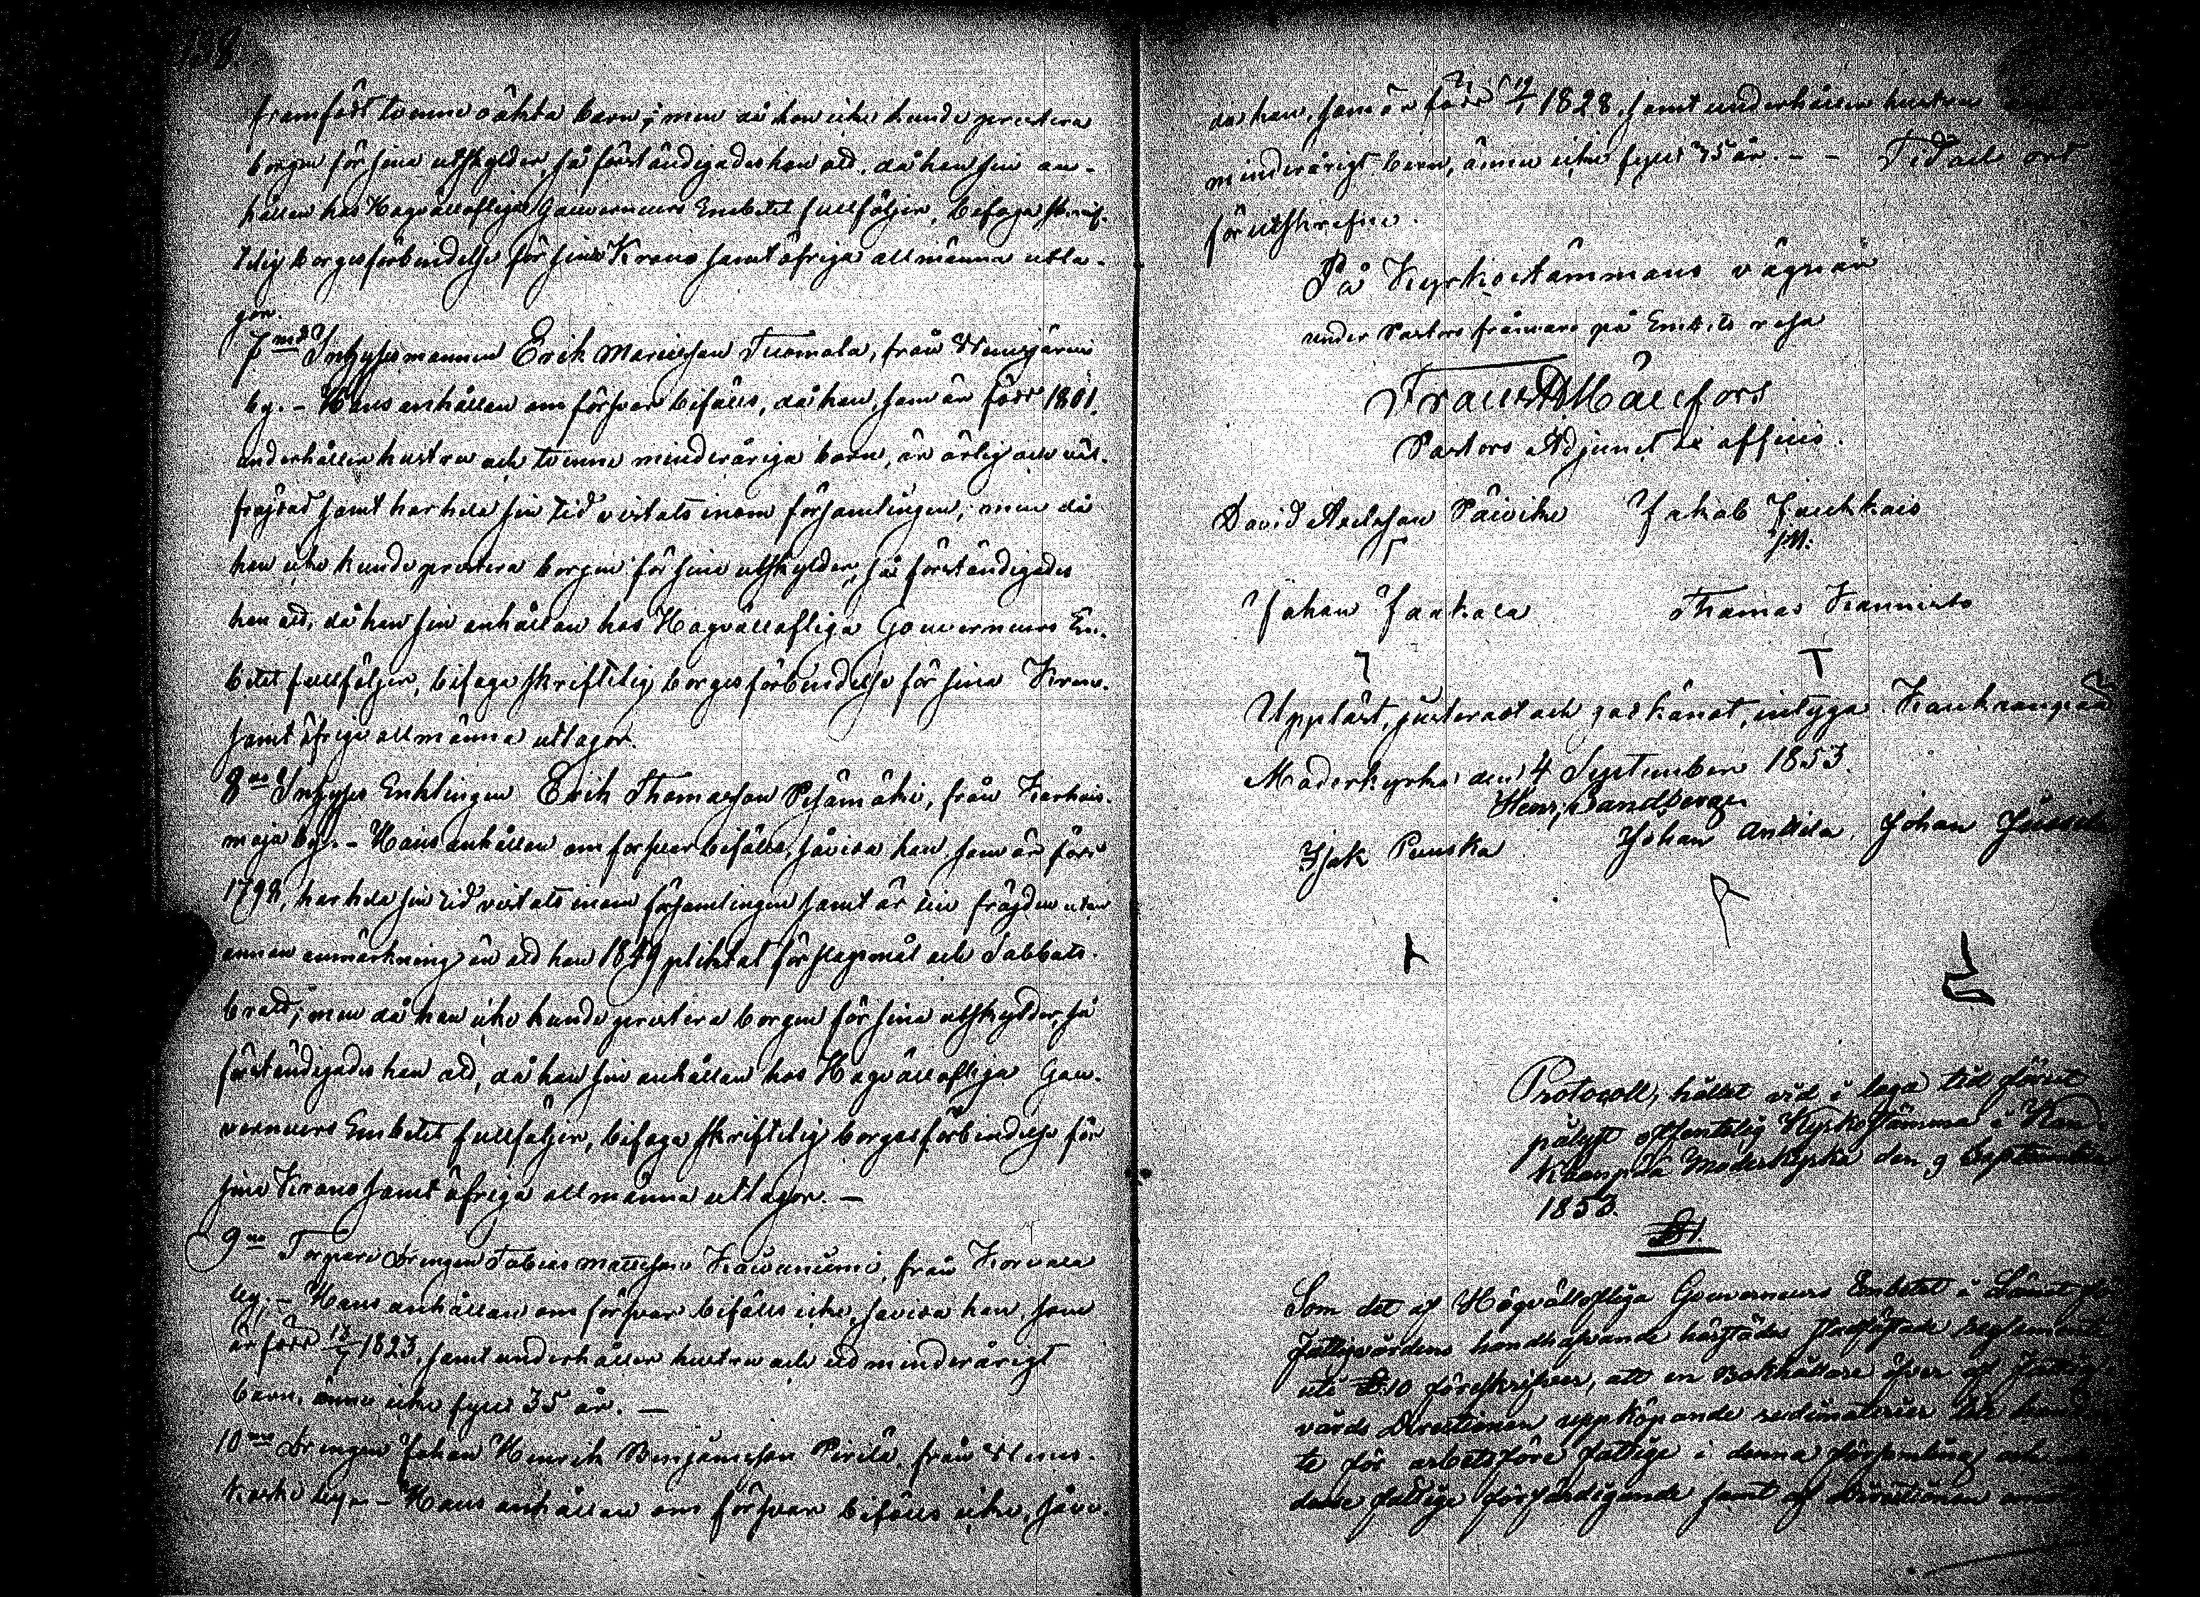 138.
framfödt tvenne oäkta barn; men då hon icke kunde prestera
borgen för sina utskylder, så förständigades hon att, då hon sin an-
hållan hos Högvällofliga Gouverneurs Embetet fullföljer, bifoga skrif-
telig borgesförbindelse för sina Krono samt öfriga allmänna utla-
gor.
7mo Inhysesmannen Erik Mariasson Tuomala, från
by. – Hans anhållan om försvar bifölls, då han, som är född 1801,
underhåller hustru och tvenne minderåriga barn, är ärlig och väl-
frejdad samt har hela sin tid vistats inom församlingen; men då
han icke kunde prestera borgen för sina utskylder, så förständigades
han att, då han sin anhållan hos Högvällofliga Gouverneurs Em-
betet fullföljer, bifoga skriftelig borgesförbindelse för sina Krono
samt öfriga allmänna utlagor.
8vo Inhyses Enklingen Erik Thomasson, från
by. – Hans anhållan om försvar bifölls, såvida han som är född
1798, har hela sin tid vistats inom församlingen samt är till frejden utan
annan anmärkning än att han 1849 pliktat för slagsmål och Sabbats-
brott; men då han icke kunde prestera borgen för sina utskylder, så
förständigades han att, då han sin anhållan hos Högvällofliga Gou-
verneurs Embetet fullföljer, bifoga skriftelig borgesförbindelse för
sina Krono samt öfriga allmänna utlagor. –
9no Torpare drengen Tobias Mattsson, från Korvala
by; – Hans anhållan om försvar bifölls icke, såvida han, som
är född 1823, samt underhåller hustru och ett minderårigt
barn, ännu icke fyllt 35 år. –
10mo Drengen Johan Henrik Benjaminsson Pirilä, från
koski by. – Hans anhållan om försvar bifölls icke, såvi-
da han, som är född 1828, samt underhåller hustru
minderårigt barn, ännu icke fyllt 35 år. – – Tid och ort
förutskrefne.
På Kyrkostämmans vägnar
under Pastors frånvaro på Embets resa
Frans Mällfors
Pastors Adjunct ex officio.
David Päivike Jakob Jouckkais
Johan Jaakola Thomas Kannisto
Uppläst, justerat och godkändt, intyga. Kauhaanpää
Moderkyrka den 4 September 1853.
Henr. Sandberg
Isak Punska Johan Anttila, Johan
Protocoll, hållet vid i laga tid förut
pålyst offentelig Kyrkostämma i Kau-
haanpää Moderkyrka den 9 September
1853.
§ 1.
Som det af Högvällofliga Gouverneurs Embetet i Länet för
fattigvårdens handhafvande härstädes stadfästade reglemente
uti § 10 föreskrifver, att en Bokhållare öfver af Fattig-
vårds Directionen uppköpande rudimaterier
te för arbetsföre fattige i denna församling och
desse fattige förfärdigande samt af Directionen